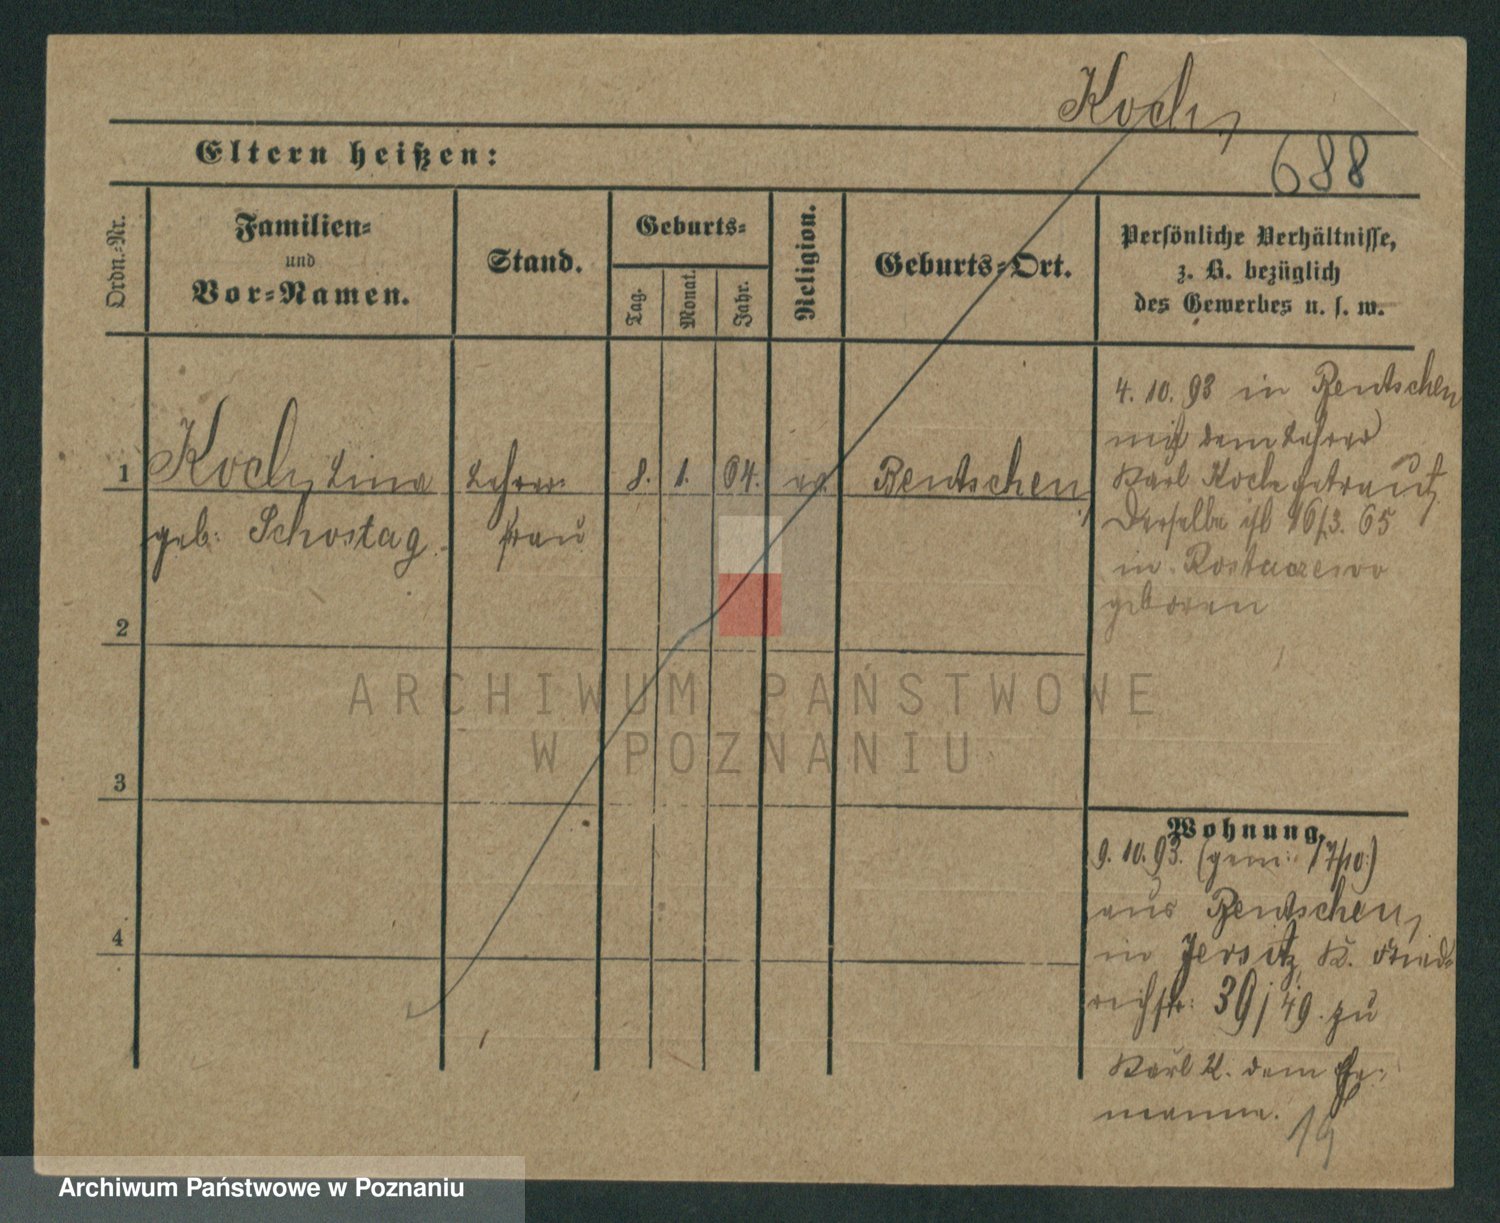 Koch,
688
Eltern heißen:
Ordn.=Nr.
Familien=
und
Vor=Namen.
Stand.
Geburts=
Tag.
Monat.
Jahr.
Religion.
Geburts=Ort.
Persönliche Verhältnisse,
z. B. bezüglich
des Gewerbes u. s. w.
1
Koch, Lina
geb: Schostag
Lehrer=
frau
8. 1. 64. ev.
Bentschen
4. 10. 93 in Bentschen
mit dem Lehrer
Karl Koch getraut,
Derselbe ist 16/3. 65
in
geboren
2
3
4
Wohnung.
9. 10. 93. (gem: 17/10.)
aus Bentschen,
in Jersitz, K. Fried=
richstr: 39/49. zu
Karl K. dem Ehe=
manne.
19
ARCHIWUM PAŃSTWOWE
W POZNANIU
Archiwum Państwowe w Poznaniu